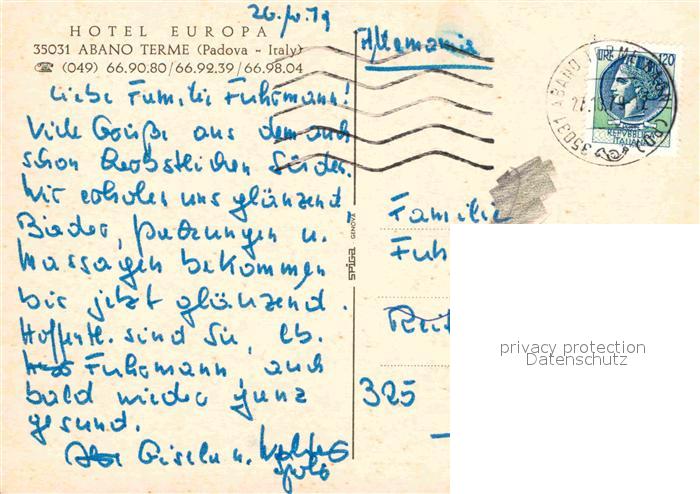 26.10.79
HOTEL EUROPA
35031 ABANO TERME (Padova - Italy)
☎ (049) 66.90.80/66.92.39/66.98.04
Liebe Familie Fuhrmann!
Viele Grüße aus dem auch
schon herbstlichen Süden.
Wir erholen uns glänzend
Bäder, Packungen u.
Massagen bekommen
bis jetzt glänzend.
Hoffentl. sind Sie, lb.
Fuhrmann, auch
bald wieder ganz
gesund.
Gisela u.
Allemania
LIRE 120
REPUBBLICA
ITALIANA
35031 ABANO TERME
Familie
Fuh
325
SPIGA GENOVA
privacy protection
Datenschutz